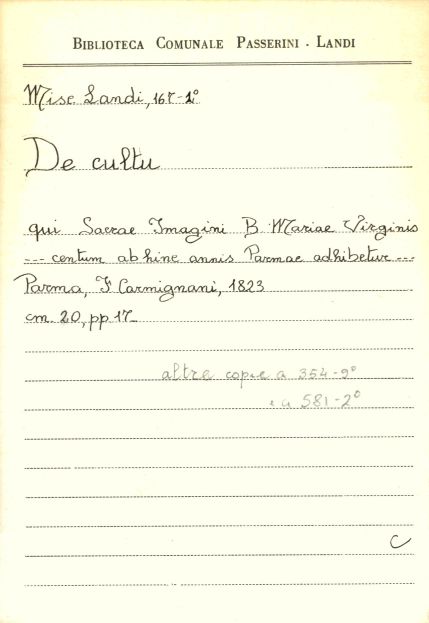 BIBLIOTECA COMUNALE PASSERINI - LANDI
Misc Landi, 167-1º
De cultu
qui Sacrae Imagini B. Mariae Virginis
--- centum abhinc annis Parmae adhibetur ---
Parma, F Carmignani, 1823
cm. 20, pp 17
altre copie a 354-9º
e a 581-2º
C